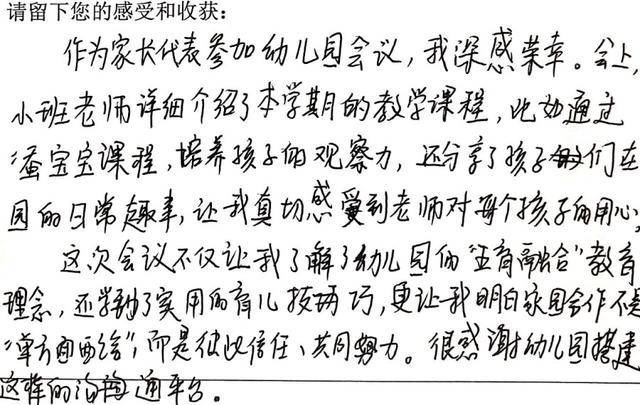 请留下您的感受和收获:
作为家长代表参加幼儿园会议,我深感荣幸。会上,
小班老师详细介绍了本学期的教学课程,比如通过
蚕宝宝课程,培养孩子的观察力,还分享了孩子们在
园的日常趣事,让我真切感受到老师对每个孩子的用心,
这次会议不仅让我了解了幼儿园的“五育融合”教育
理念,还学到了实用的育儿技巧,更让我明白家园合作不是
“单方面配合”,而是彼此信任、共同努力。很感谢幼儿园搭建
这样的沟通平台。